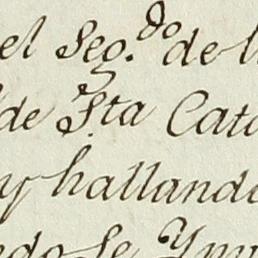 el Seg.do de l
de Sta Cata
y halland
do se Ym